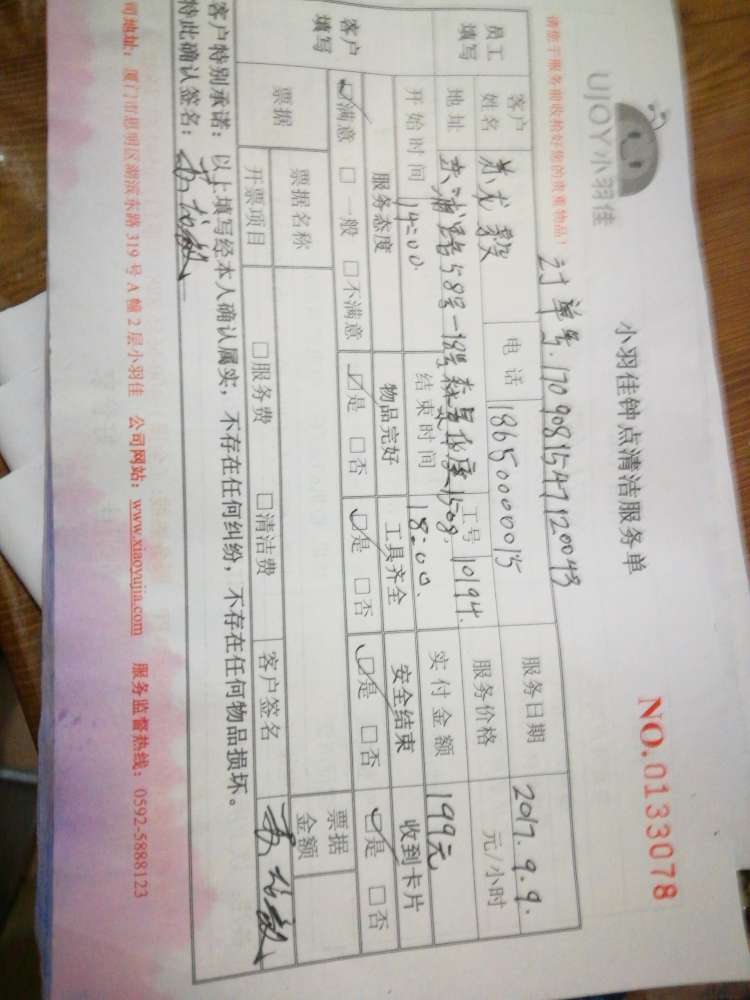 UJOY小羽佳
小羽佳钟点清洁服务单
NO.0133078
请您于服务前收拾好您的贵重物品！
订单号.17090815471120043
员工填写 客户姓名 电话 18650000015 服务日期 2017.9.9.
地址 58号 工号 10194. 服务价格 元/小时
开始时间 14:00 结束时间 18:00. 实付金额 199元
客户填写 服务态度 物品完好 工具齐全 安全结束 收到卡片
☑满意 □一般 □不满意 ☑是 □否 ☑是 □否 ☑是 □否 ☑是 □否
票据 票据名称 票据金额
开票项目 □服务费 □清洁费 客户签名
客户特别承诺：以上填写经本人确认属实，不存在任何纠纷，不存在任何物品损坏。
特此确认签名：
司地址：厦门市思明区湖滨东路319号A幢2层小羽佳 公司网站：www.xiaoyujia.com 服务监督热线：0592-5888123